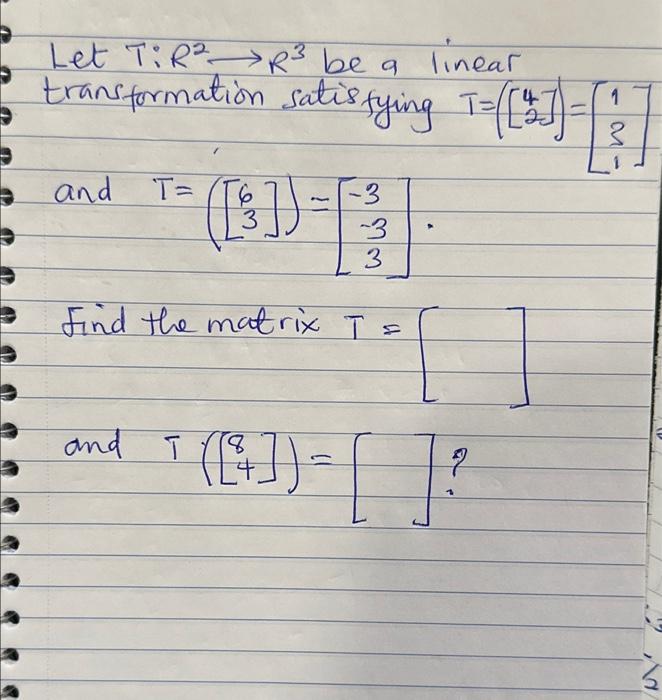 Let T: R² → R³ be a linear
transformation satisfying T=([4 2])=[1 3 1]
and T= ([6 3])=[-3 -3 3].
Find the matrix T = [ ]
and T ([8 4]) = [ ]?